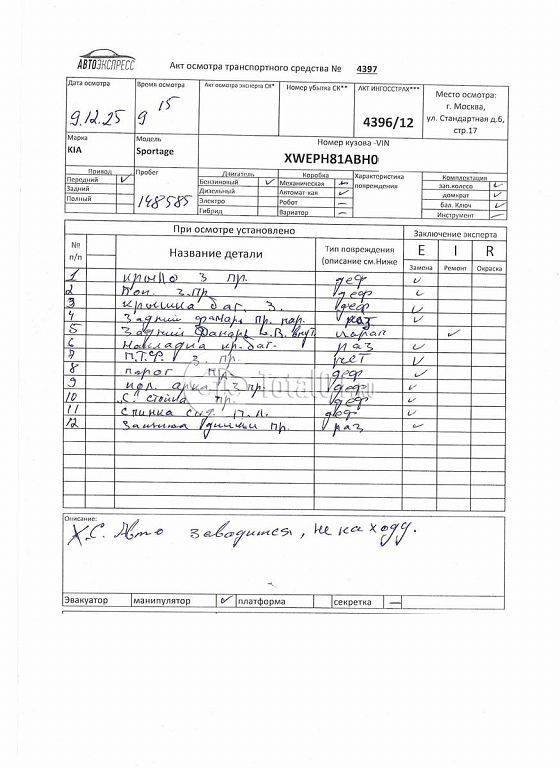 АВТОЭКСПРЕСС
Акт осмотра транспортного средства № 4397
Дата осмотра
9.12.25
Время осмотра
9 15
Акт осмотра эксперта СК*
Номер убытка СК**
АКТ ИНГОССТРАХ***
4396/12
Место осмотра:
г. Москва,
ул. Стандартная д.6,
стр.17
Марка
KIA
Модель
Sportage
Номер кузова -VIN
XWEPH81ABH0
Привод
Передний ✓
Задний
Полный
Пробег
148585
Двигатель
Бензиновый ✓
Дизельный
Электро
Гибрид
Коробка
Механическая
Автомат-кая ✓
Робот –
Вариатор –
Характеристика
повреждения
Комплектация
зап.колесо ✓
домкрат ✓
бал. Ключ ✓
Инструмент –
При осмотре установлено
Заключение эксперта
№
п/п
Название детали
Тип повреждения
(описание см.Ниже
E I R
Замена Ремонт Окраска
1 крыло з пр. деф ✓
2 з.пр. деф ✓
3 крышка баг. з. деф ✓
4 Задний фонарь пр. нар. раз ✓
5 Задний фонарь внут. царап ✓
6 Накладка кр. баг. раз ✓
7 П.Т.Ф. з. пр. нет ✓
8 порог пр деф ✓
9 арка з пр. деф ✓
10 С. стойка пр. деф ✓
11 спинка сид. п.л. деф ✓
12 пр. раз ✓
Total01.ru
Описание:
Х.С. Авто заводится, не на ходу.
Эвакуатор манипулятор ✓ платформа секретка –